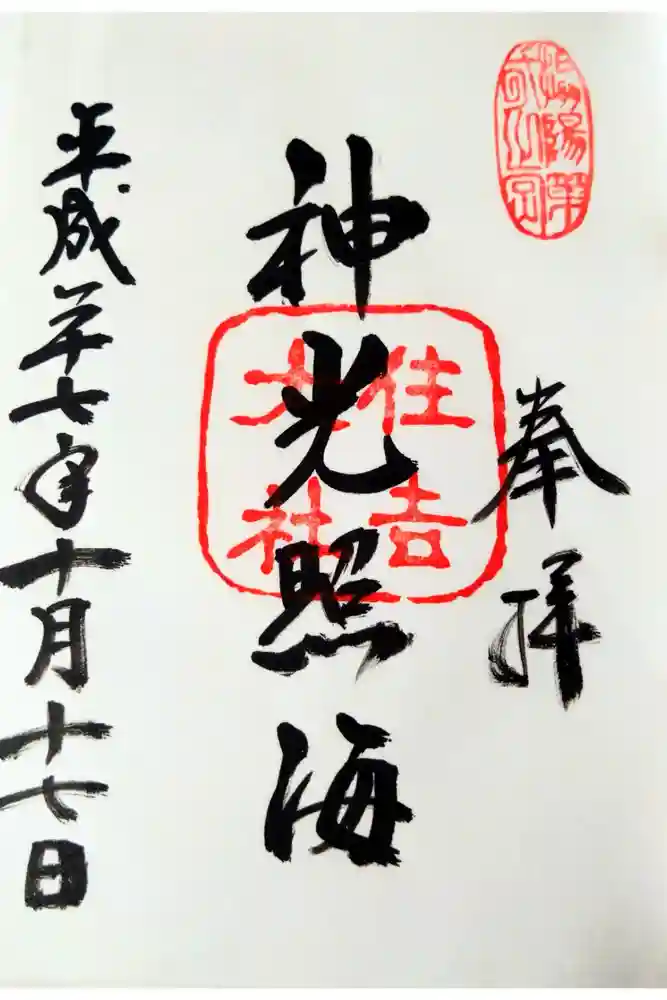 奉拝
神光照海
住吉
大社
平成二十七年十月十七日